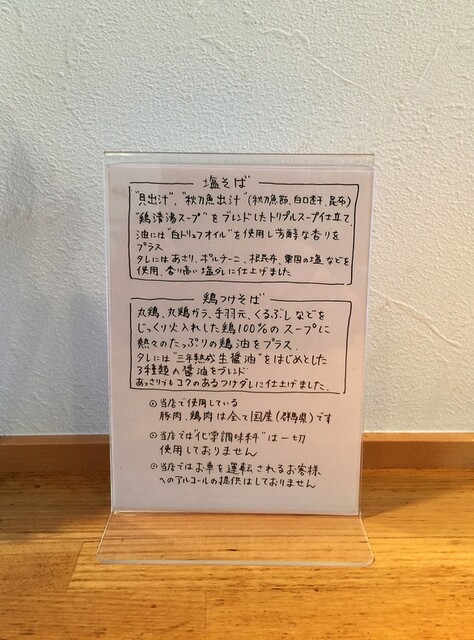 塩そば
"貝出汁"、"秋刀魚出汁"(秋刀魚節、白口煮干、昆布)
"鶏清湯スープ"をブレンドしたトリプルスープ仕立て。
油には"白トリュフオイル"を使用し芳醇な香りを
プラス
タレにはあさり、ポルチーニ、根昆布、数国の塩などを
使用、香り高い塩ダレに仕上げました
鶏つけそば
丸鶏、丸鶏ガラ、手羽元、くるぶしなどを
じっくり火入れした鶏100%のスープに
熱々のたっぷりの鶏油をプラス。
タレには"三年熟成生醤油"をはじめとした
3種類の醤油をブレンド
あっさりでもコクのあるつけダレに仕上げました。
⊙当店で使用している
豚肉、鶏肉は全て国産(群馬県)です
⊙当店では"化学調味料"は一切
使用しておりません
⊙当店ではお車を運転されるお客様
へのアルコールの提供はしておりません